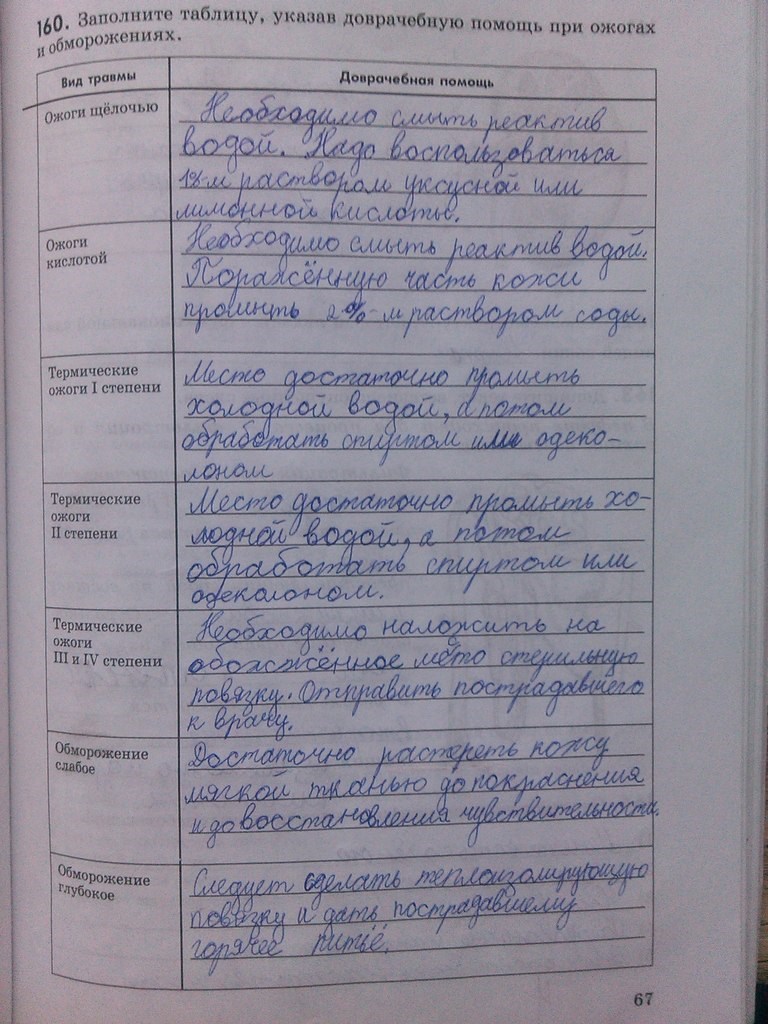 160. Заполните таблицу, указав доврачебную помощь при ожогах
и обморожениях.
Вид травмы
Доврачебная помощь
Ожоги щёлочью
Необходимо смыть реактив
водой. Надо воспользоваться
раствором уксусной или
лимонной кислоты.
Ожоги
кислотой
Необходимо смыть реактив водой.
Поражённую часть кожи
промыть 2%-м раствором соды.
Термические
ожоги I степени
Место достаточно промыть
холодной водой, а потом
обработать спиртом или одеко-
лоном
Термические
ожоги
II степени
Место достаточно промыть хо-
лодной водой, а потом
обработать спиртом или
одеколоном.
Термические
ожоги
III и IV степени
Необходимо наложить на
обожжённое место стерильную
повязку. Отправить пострадавшего
к врачу.
Обморожение
слабое
Достаточно растереть кожу
мягкой тканью до покраснения
и до восстановления чувствительности.
Обморожение
глубокое
Следует сделать теплоизолирующую
повязку и дать пострадавшему
горячее питьё.
67